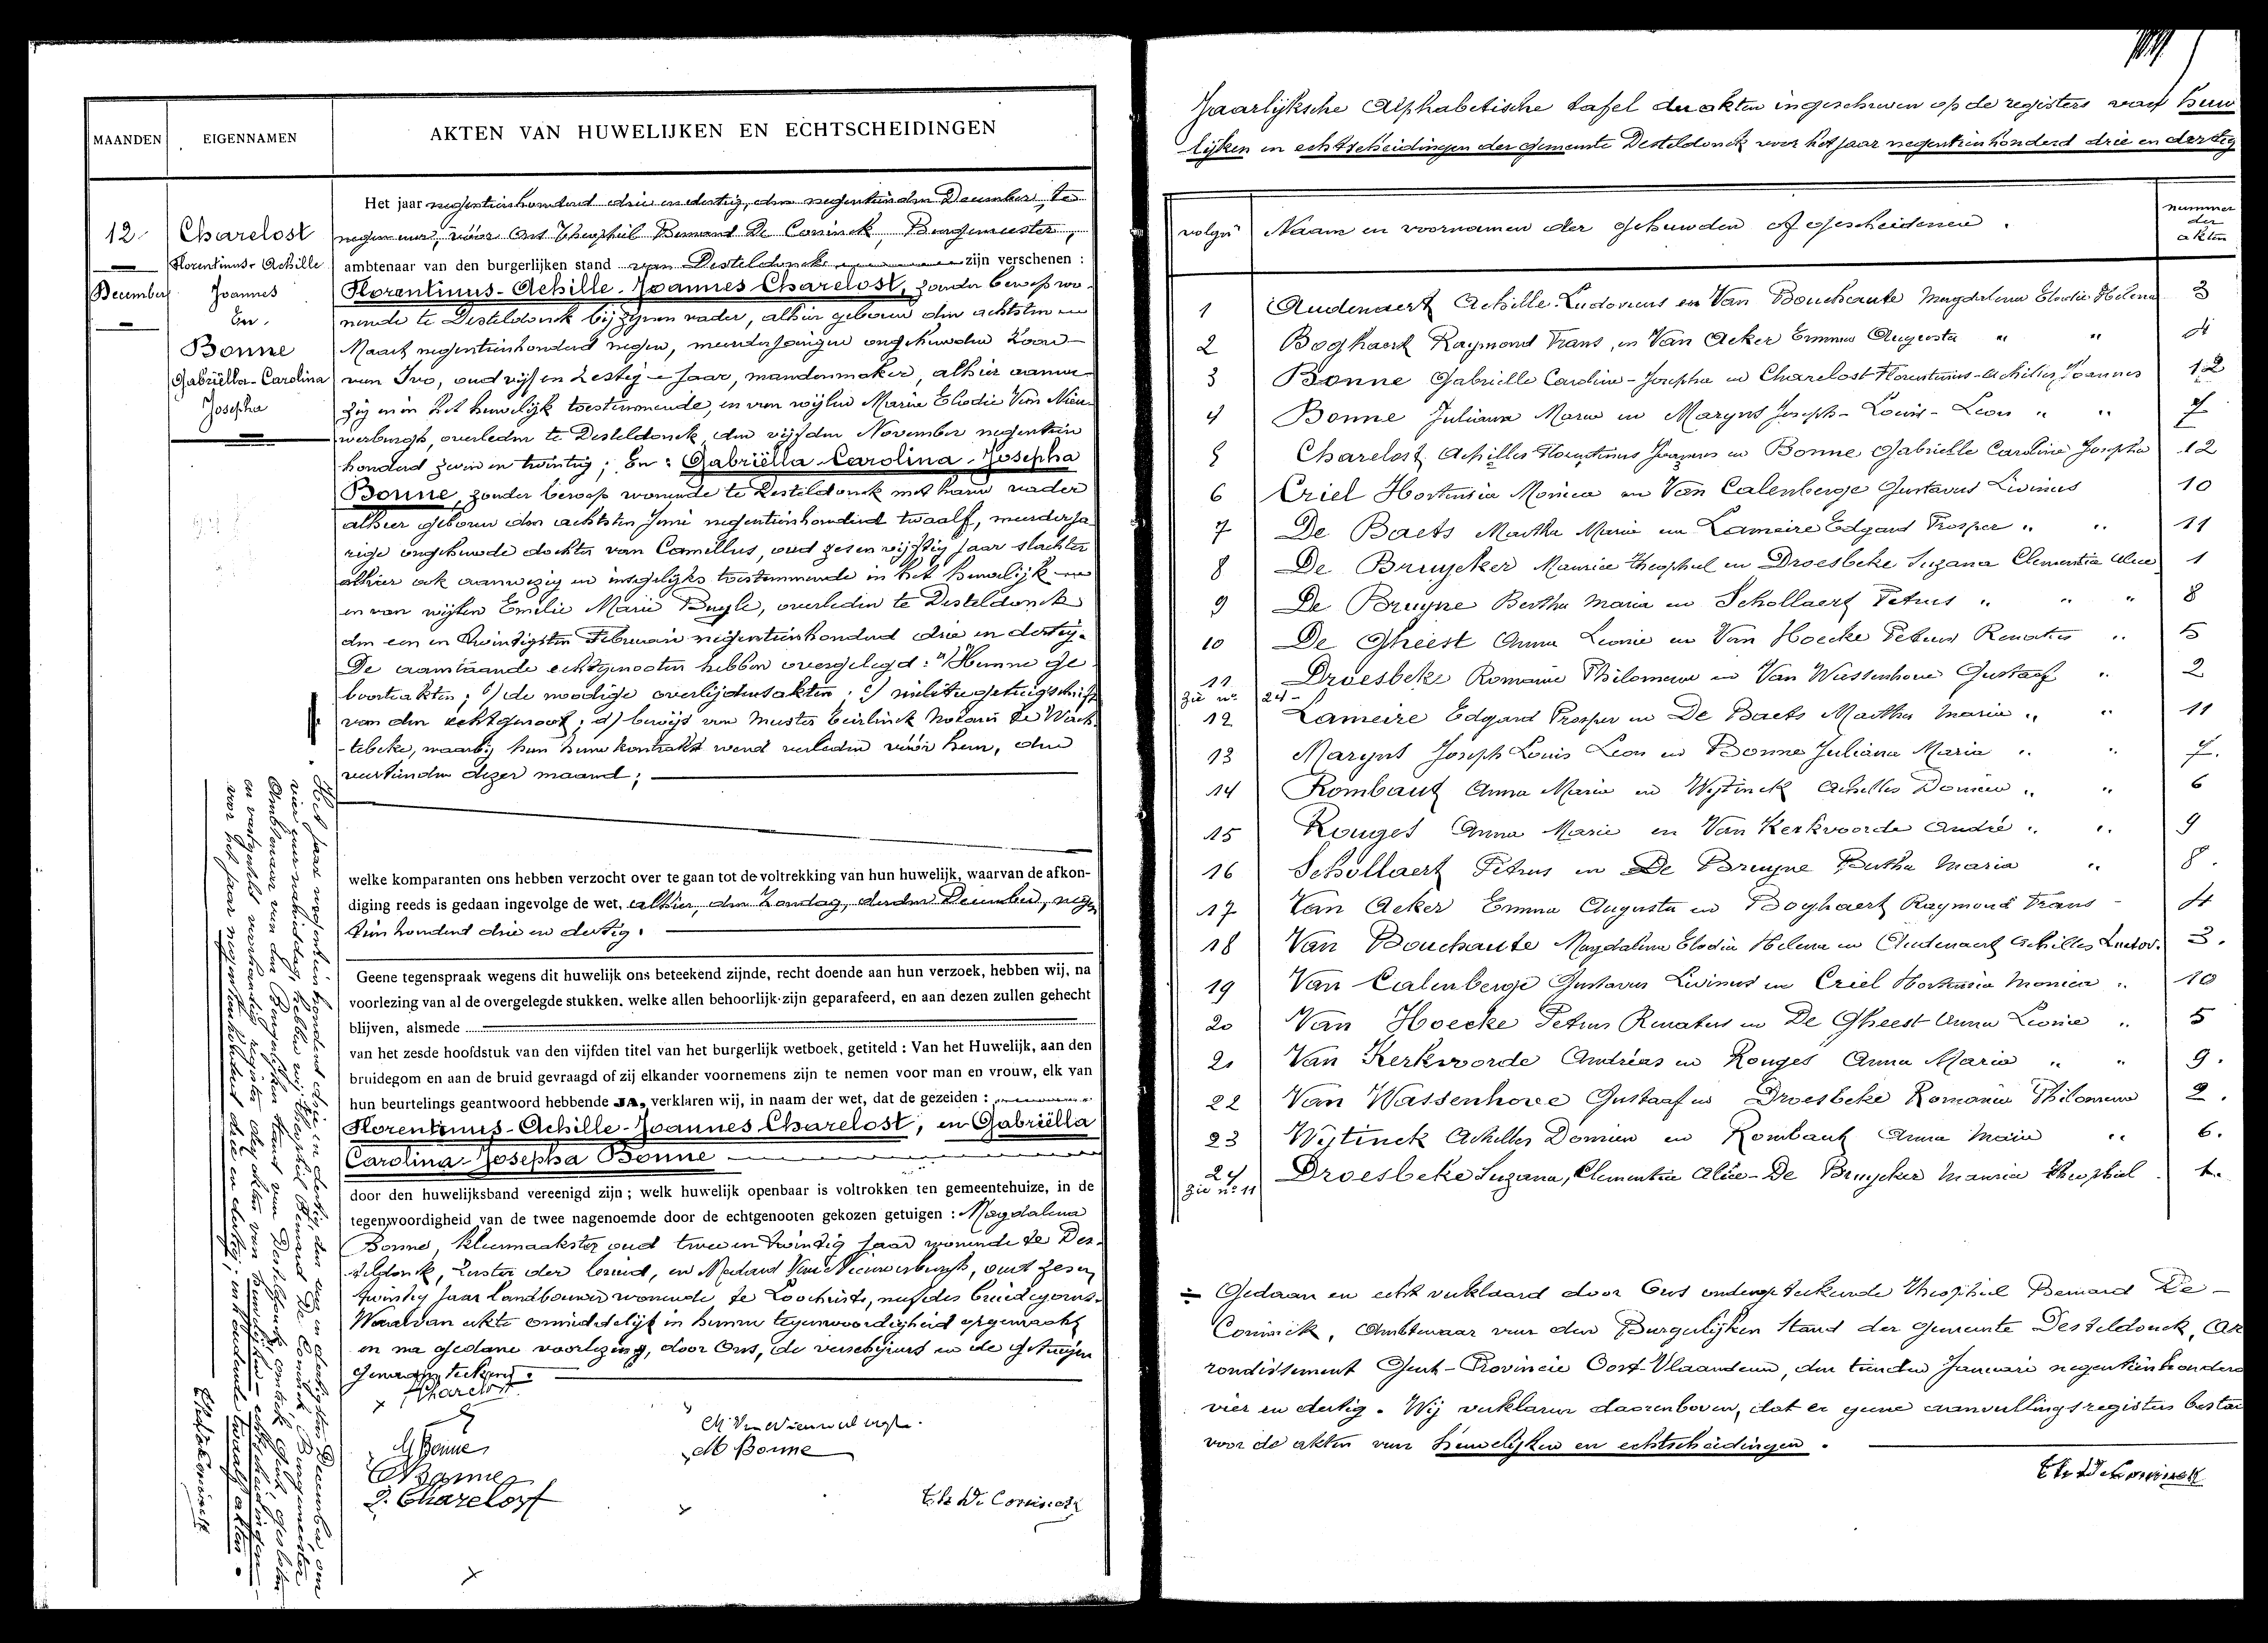 MAANDEN
EIGENNAMEN
AKTEN VAN HUWELIJKEN EN ECHTSCHEIDINGEN
12
December
Charelost
Florentinus-Achille
Joannes
En.
Bonne
Gabriëlla-Carolina
Josepha
Het jaar negentienhonderd drie en dertig, den negentienden December, te
negen uur, vóór Ons Theophiel Bernard De Coninck, Burgemeester,
ambtenaar van den burgerlijken stand van Desteldonck zijn verschenen :
Florentinus-Achille-Joannes Charelost, zonder beroep wo-
nende te Desteldonck bij zijnen vader, alhier geboren den achtsten
Maart negentienhonderd negen, meerderjarigen ongehuwden zoon
van Ivo, oud vijf en zestig jaar, mandenmaker, alhier aanwe-
zig en in het huwelijk toestemmende, en van wijlen Maria Elodie Van Nieu-
werburgh, overleden te Desteldonck, den vijfden November negentien
honderd zeven en twintig; En : Gabriëlla-Carolina-Josepha
Bonne, zonder beroep wonende te Desteldonck met haren vader
alhier geboren den achtsten Juni negentienhonderd twaalf, meerderja-
rige ongehuwde dochter van Camillus, oud zes en vijftig jaar slachter
alhier ook aanwezig en insgelijks toestemmende in het huwelijk
en van wijlen Emilie Marie Buyle, overleden te Desteldonck
den een en twintigsten Februari negentienhonderd drie en dertig.
De aanstaande echtgenooten hebben overgelegd : a) Hunne ge-
boorteakten; b) de noodige overlijdensakten; c) militiegetuigschrift
van den echtgenoot; d) bewijs van Meester Geirlinck Notaris te Wach-
tebeke, waarbij hun huwkontrakt werd verleden vóór hem, den
veertienden dezer maand;
welke komparanten ons hebben verzocht over te gaan tot de voltrekking van hun huwelijk, waarvan de afkon-
diging reeds is gedaan ingevolge de wet, alhier, den Zondag, derden December, negen
tien honderd drie en dertig.
Geene tegenspraak wegens dit huwelijk ons beteekend zijnde, recht doende aan hun verzoek, hebben wij, na
voorlezing van al de overgelegde stukken. welke allen behoorlijk zijn geparafeerd, en aan dezen zullen gehecht
blijven, alsmede
van het zesde hoofdstuk van den vijfden titel van het burgerlijk wetboek, getiteld : Van het Huwelijk, aan den
bruidegom en aan de bruid gevraagd of zij elkander voornemens zijn te nemen voor man en vrouw, elk van
hun beurtelings geantwoord hebbende JA, verklaren wij, in naam der wet, dat de gezeiden :
Florentinus-Achille-Joannes Charelost, en Gabriëlla
Carolina-Josepha Bonne
door den huwelijksband vereenigd zijn; welk huwelijk openbaar is voltrokken ten gemeentehuize, in de
tegenwoordigheid van de twee nagenoemde door de echtgenooten gekozen getuigen : Magdalena
Bonne, kleermaakster oud twee en twintig jaar wonende te Des-
teldonck, zuster der bruid, en Medard Van Nieuwerburgh, oud zes en
twintig jaar landbouwer wonende te Loochristi, neef des bruidegoms.
Waarvan akte onmiddelijk in hunne tegenwoordigheid opgemaakt
en na gedane voorlezing, door Ons, de verschijners en de getuigen
geworden teekend.
F Charelost
G Bonne
C Bonne
I. Charelost
M Van Nieuwerburgh.
M Bonne
Th De Coninck
Het jaar negentien honderd drie en dertig, den een en dertigsten December, om
vier uur namiddag, hebben wij Theophiel Bernard De Coninck, Burgemeester
Ambtenaar van den Burgerlijken stand van Desteldonck, omtrek Gent, gesloten
en vastgesteld voorhandig register der akten van huwelijken - echtscheidingen -
voor het jaar negentienhonderd drie en dertig; inhoudende twaalf akten.
Th De Coninck
Jaarlijksche Alphabetische tafel der akten ingeschreven op de registers van huw
lijken en echtscheidingen der Gemeente Desteldonck voor het jaar negentienhonderd drie en dertig
volgnr
Naam en voornamen der gehuwden of gescheidenen.
nummer der akten
1 Audenaert Achille Ludovicus en Van Bouchaute Magdalena Elodie Helena 3
2 Boghaert Raymond Frans, en Van Acker Emma Augusta " " 4
3 Bonne Gabrielle Caroline-Josepha en Charelost Florentinus-Achilles Joannes 12
4 Bonne Juliana Maria en Maryns Joseph-Louis-Leon " " 7
5 Charelost Achilles Florentinus Joannes en Bonne Gabrielle Caroline Josepha 12
6 Criel Hortensia Monica en Van Calenberge Gustavus Livinus 10
7 De Baets Martha Maria en Lameire Edgard Prosper " " 11
8 De Bruycker Maurice Theophiel en Droesbeke Suzana Clementia Alice 1
9 De Bruyne Bertha Maria en Schollaert Petrus " " " 8
10 De Gheest Anna Leonie en Van Hoecke Petrus Renatus " 5
11 Droesbeke Romanie Philomena en Van Wassenhove Gustaaf " 2
Zie nr 24 -
12 Lameire Edgard Prosper en De Baets Martha Maria " " 11
13 Maryns Joseph Louis Leon en Bonne Juliana Maria " " 7.
14 Rombaut Anna Maria en Wytinck Achilles Domien " " 6
15 Rouges Anna Marie en Van Kerkvoorde André " " 9
16 Schollaert Petrus en De Bruyne Bertha Maria " 8.
17 Van Acker Emma Augusta en Boghaert Raymond Frans - 4
18 Van Bouchaute Magdalena Elodia Helena en Audenaert Achilles Ludov. 3.
19 Van Calenberge Gustavus Livinus en Criel Hortensia Monica " 10
20 Van Hoecke Petrus Renatus en De Gheest Anna Leonie " 5
21 Van Kerkvoorde Andréas en Rouges Anna Maria " " 9.
22 Van Wassenhove Gustaaf en Droesbeke Romanie Philomena 2.
23 Wytinck Achilles Domien en Rombaut Anna Maria " 6.
24 Droesbeke Suzana, Clementia Alice - De Bruycker Maurice Theophiel 1.
Zie nr 11
Gedaan en echt verklaard door Ons ondergeteekende Theophiel Bernard De -
Coninck, Ambtenaar van den Burgerlijken Stand der Gemeente Desteldonck, Ar
rondissement Gent - Provincie Oost-Vlaanderen, den tienden Januari negentienhonderd
vier en dertig. Wij verklaren daarenboven, dat er geene aanvullingsregisters bestaa
voor de akten van huwelijken en echtscheidingen.
Th De Coninck